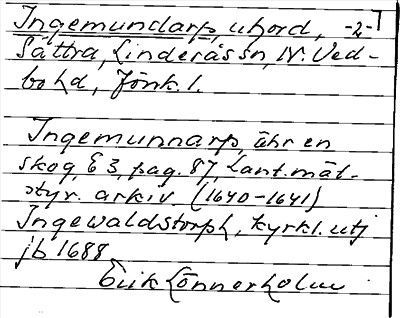 Ingemundarp, uhord, -2-
Sättra, Linderås sn, N. Ved-
bo hd, Jönk. l.
Ingemunnarp, ähr en
skog, E 3, pag. 87, Lant.mät.
styr. arkiv. (1640-1641)
Ingewaldstorph, kyrkl. utj
jb 1688
Erik Lönnerholm